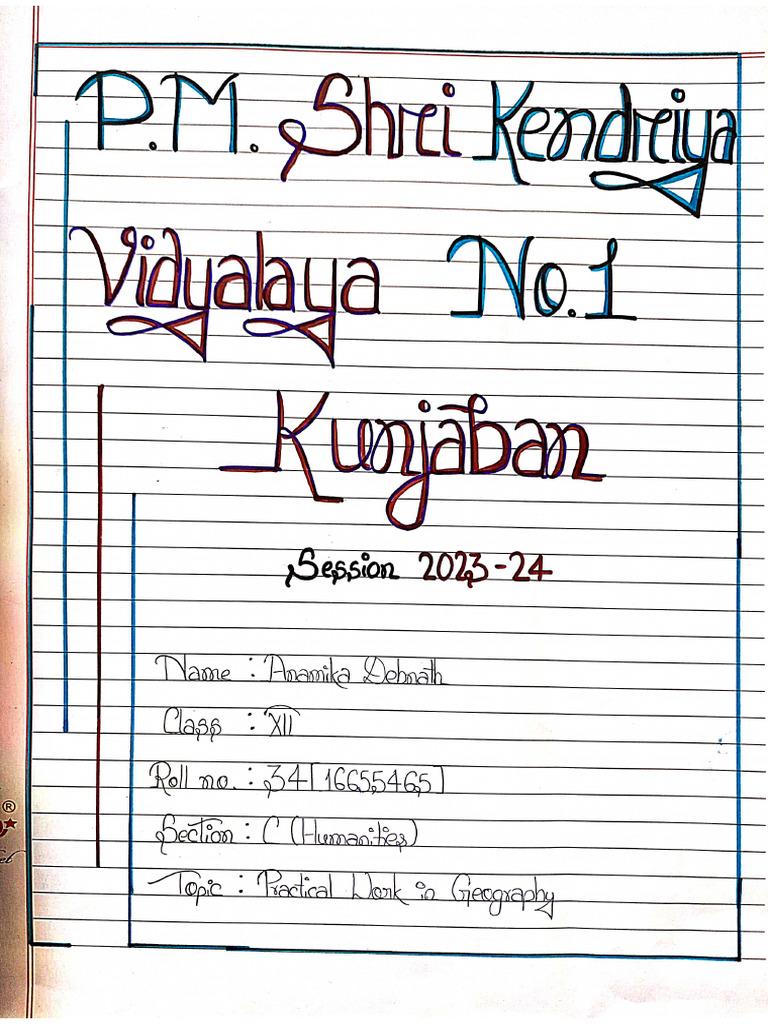 P.M. Shri Kendriya
Vidyalaya No.1
Kunjaban
Session 2023-24
Name : Anamika Debnath
Class : XII
Roll no. : 34[16655465]
Section : C (Humanities)
Topic : Practical Work in Geography
®